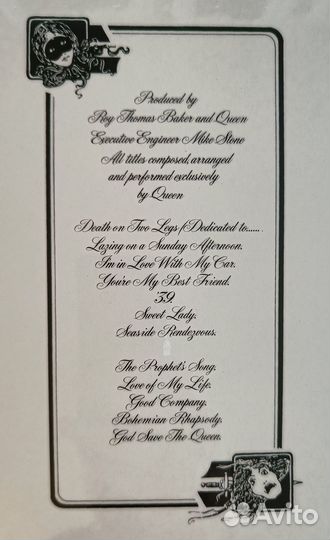 Produced by
Roy Thomas Baker and Queen
Executive Engineer Mike Stone
All titles composed, arranged
and performed exclusively
by Queen
Death on Two Legs (Dedicated to......
Lazing on a Sunday Afternoon.
I'm in Love With My Car.
You're My Best Friend.
'39.
Sweet Lady.
Seaside Rendezvous.
The Prophet's Song.
Love of My Life.
Good Company.
Bohemian Rhapsody.
God Save The Queen.
Avito